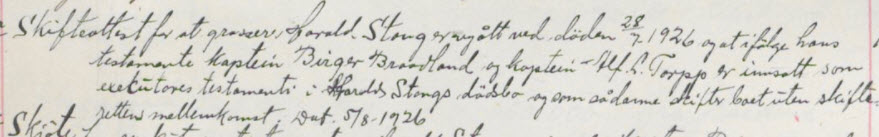 Skifteattest for at grosserer Harald Stang er avgått ved döden 28/7 1926 og at ifölge hans
testamente kaptein Birger Braadland og kaptein Alf L. Torpp er innsatt som
executores testamenti i Harald Stangs dödsbo og som sådanne skifter boet uten skifte-
rettens mellemkomst, Dat. 5/8-1926
Skjöte